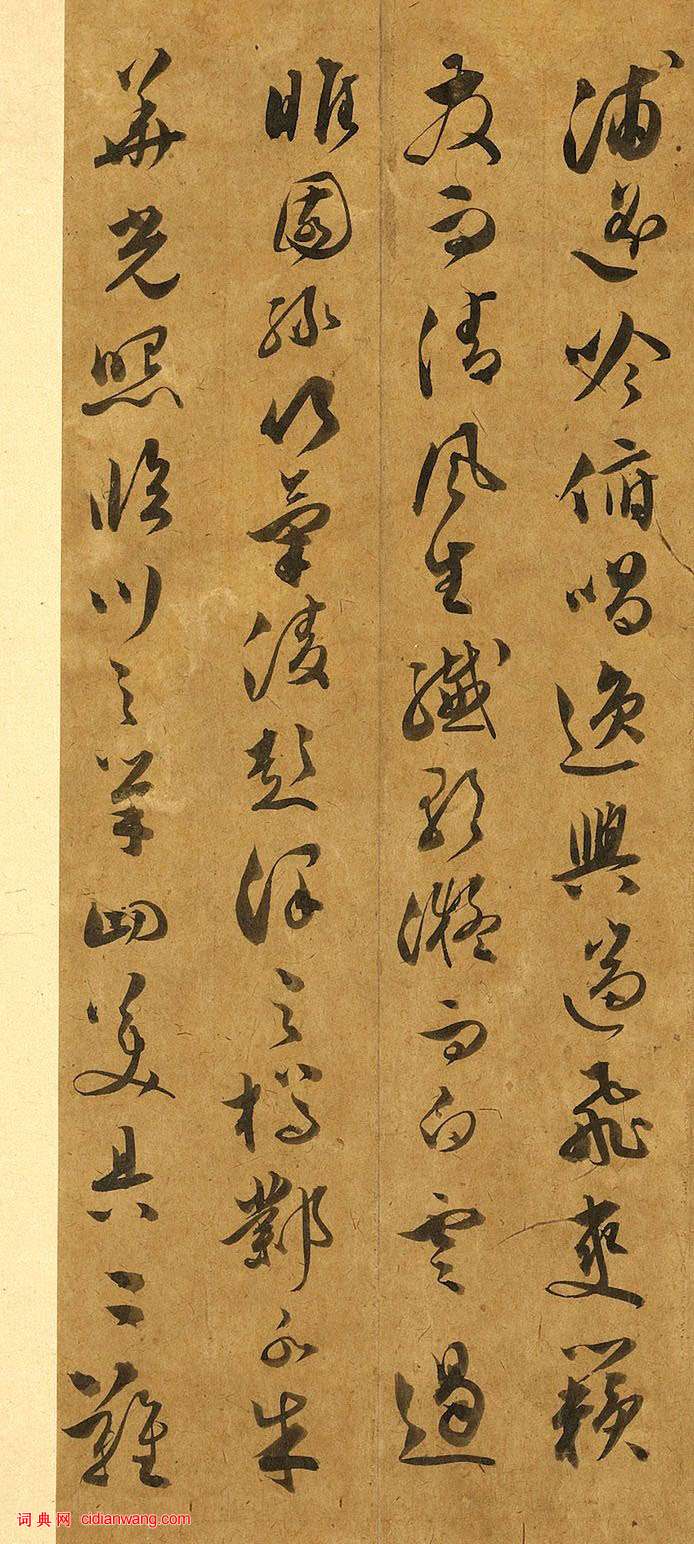 浦遙吟俯唱逸興遄飛爽籟
發而清風生纖歌凝而白雲遏
睢園綠竹氣淩彭澤之樽鄴水朱
華光照臨川之筆四美具二難
词典网 cidianwang.com